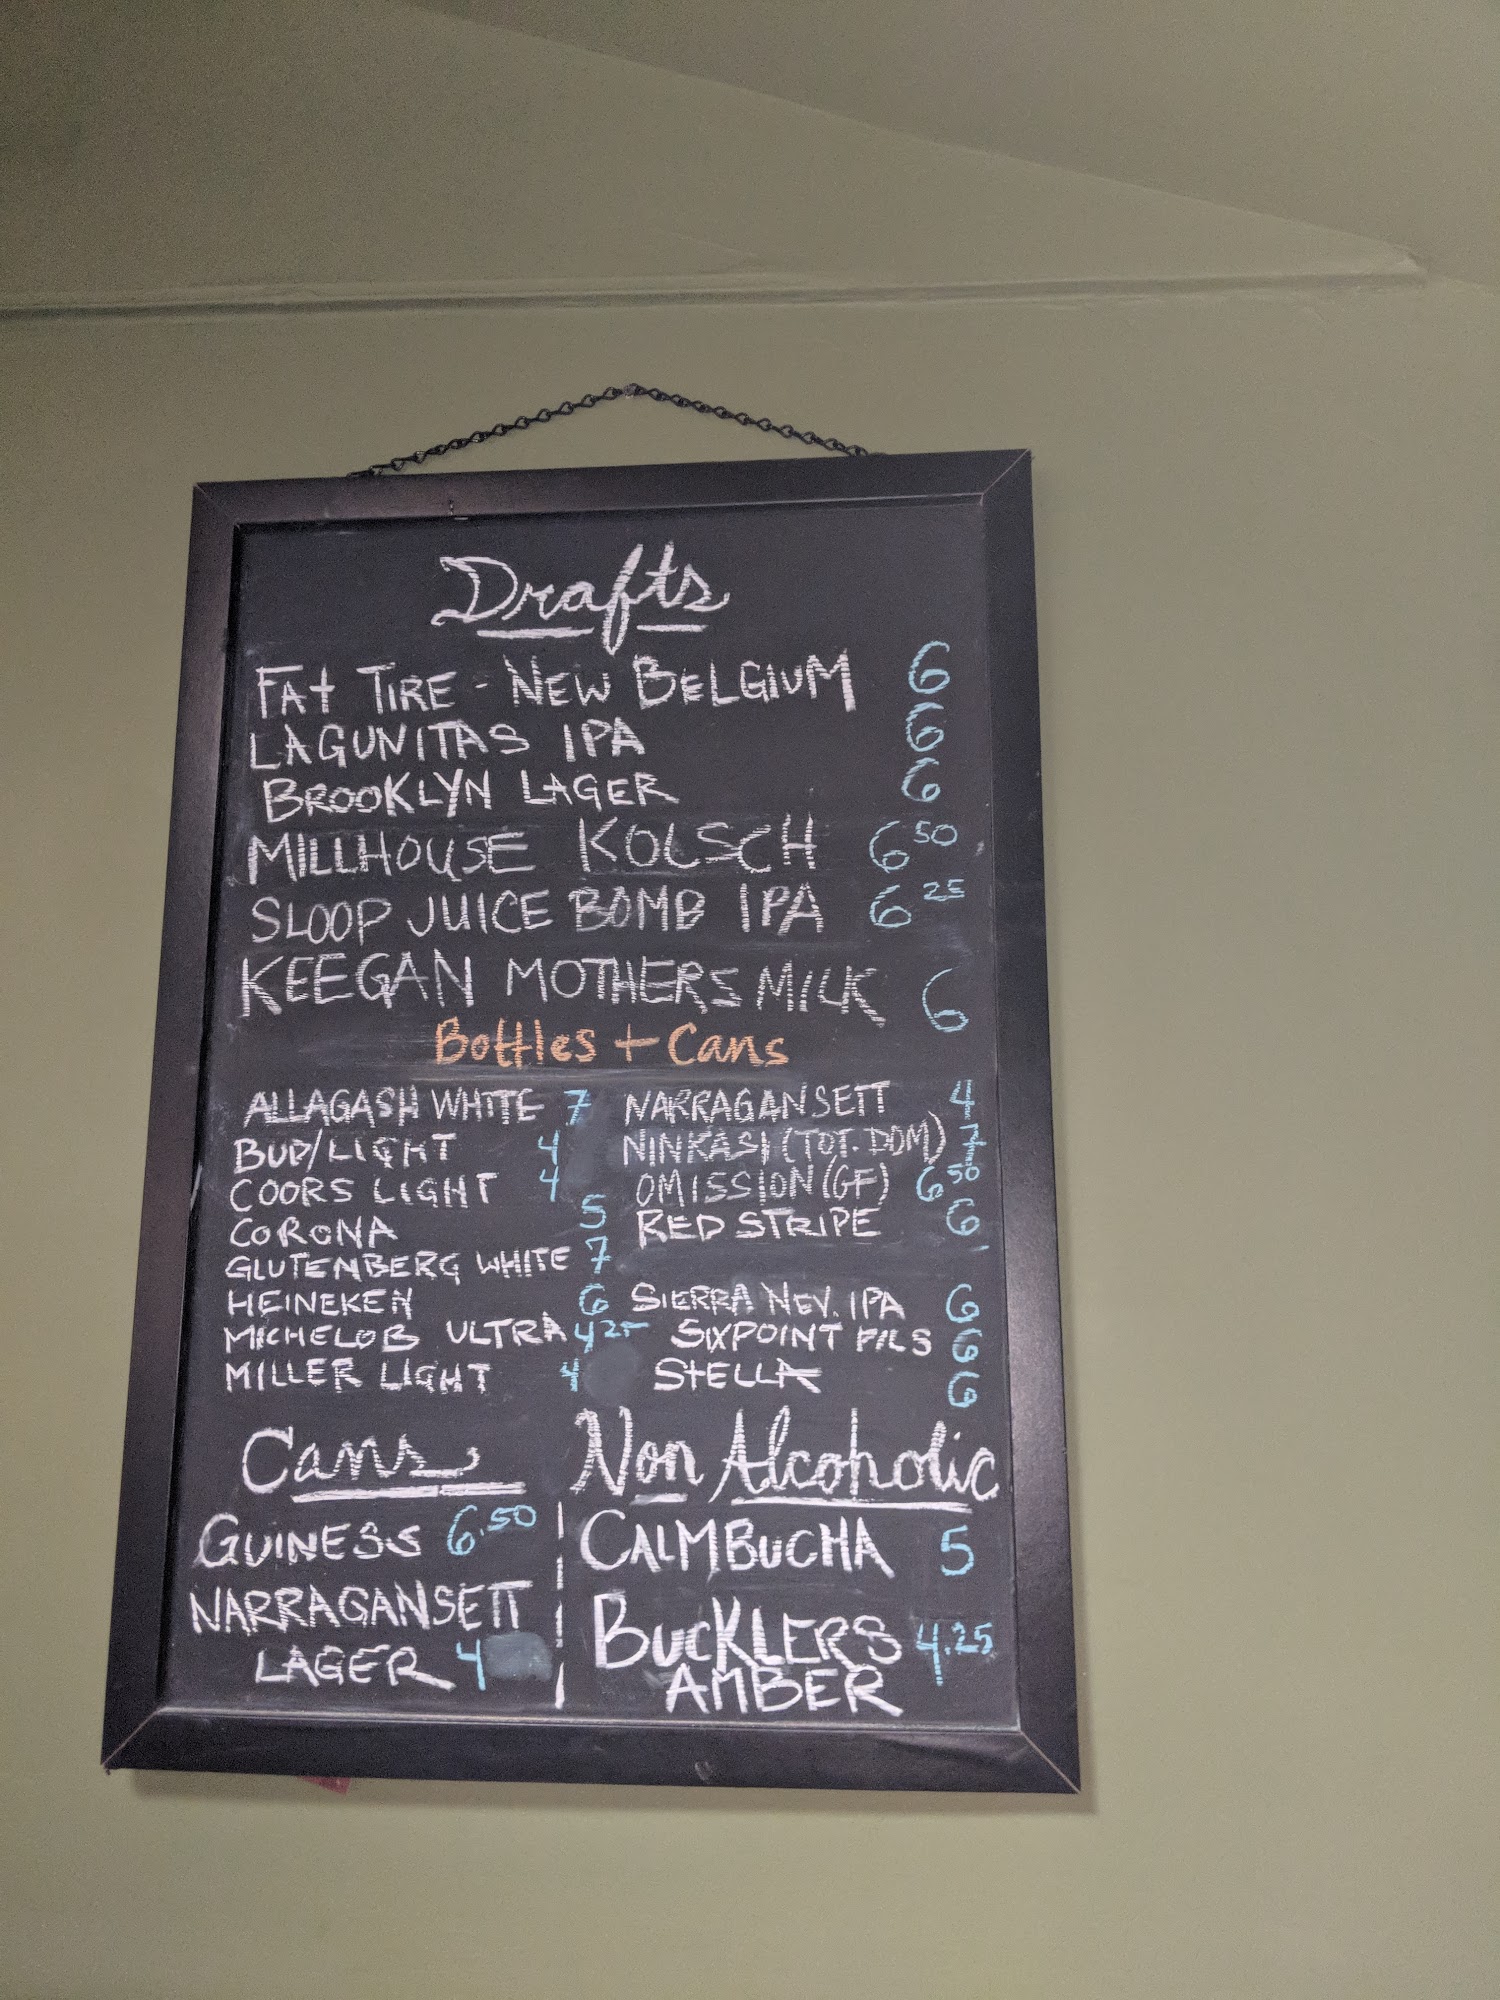 Drafts
FAt TIRE - NEW BELGIUM 6
LAGUNITAS IPA 6
BROOKLYN LAGER 6
MILLHOUSE KOLSCH 6 50
SLOOP JUICE BOMB IPA 6 25
KEEGAN MOTHERS MILK 6
Bottles + Cans
ALLAGASH WHITE 7
BUD/LIGHT 4
COORS LIGHT 4
CORONA 5
GLUTENBERG WHITE 7
HEINEKEN 6
MICHELOB ULTRA 4 25
MILLER LIGHT 4
NARRAGANSETT 4
NINKASI (TOT. DOM) 7
OMISSION (GF) 6 50
RED STRIPE 6
SIERRA NEV. IPA 6
SIXPOINT PILS 6
StELLA 6
Cans
GUINESS 6.50
NARRAGANSETT
LAGER 4
Non Alcoholic
CALMBUCHA 5
BUCKLERS 4.25
AMBER